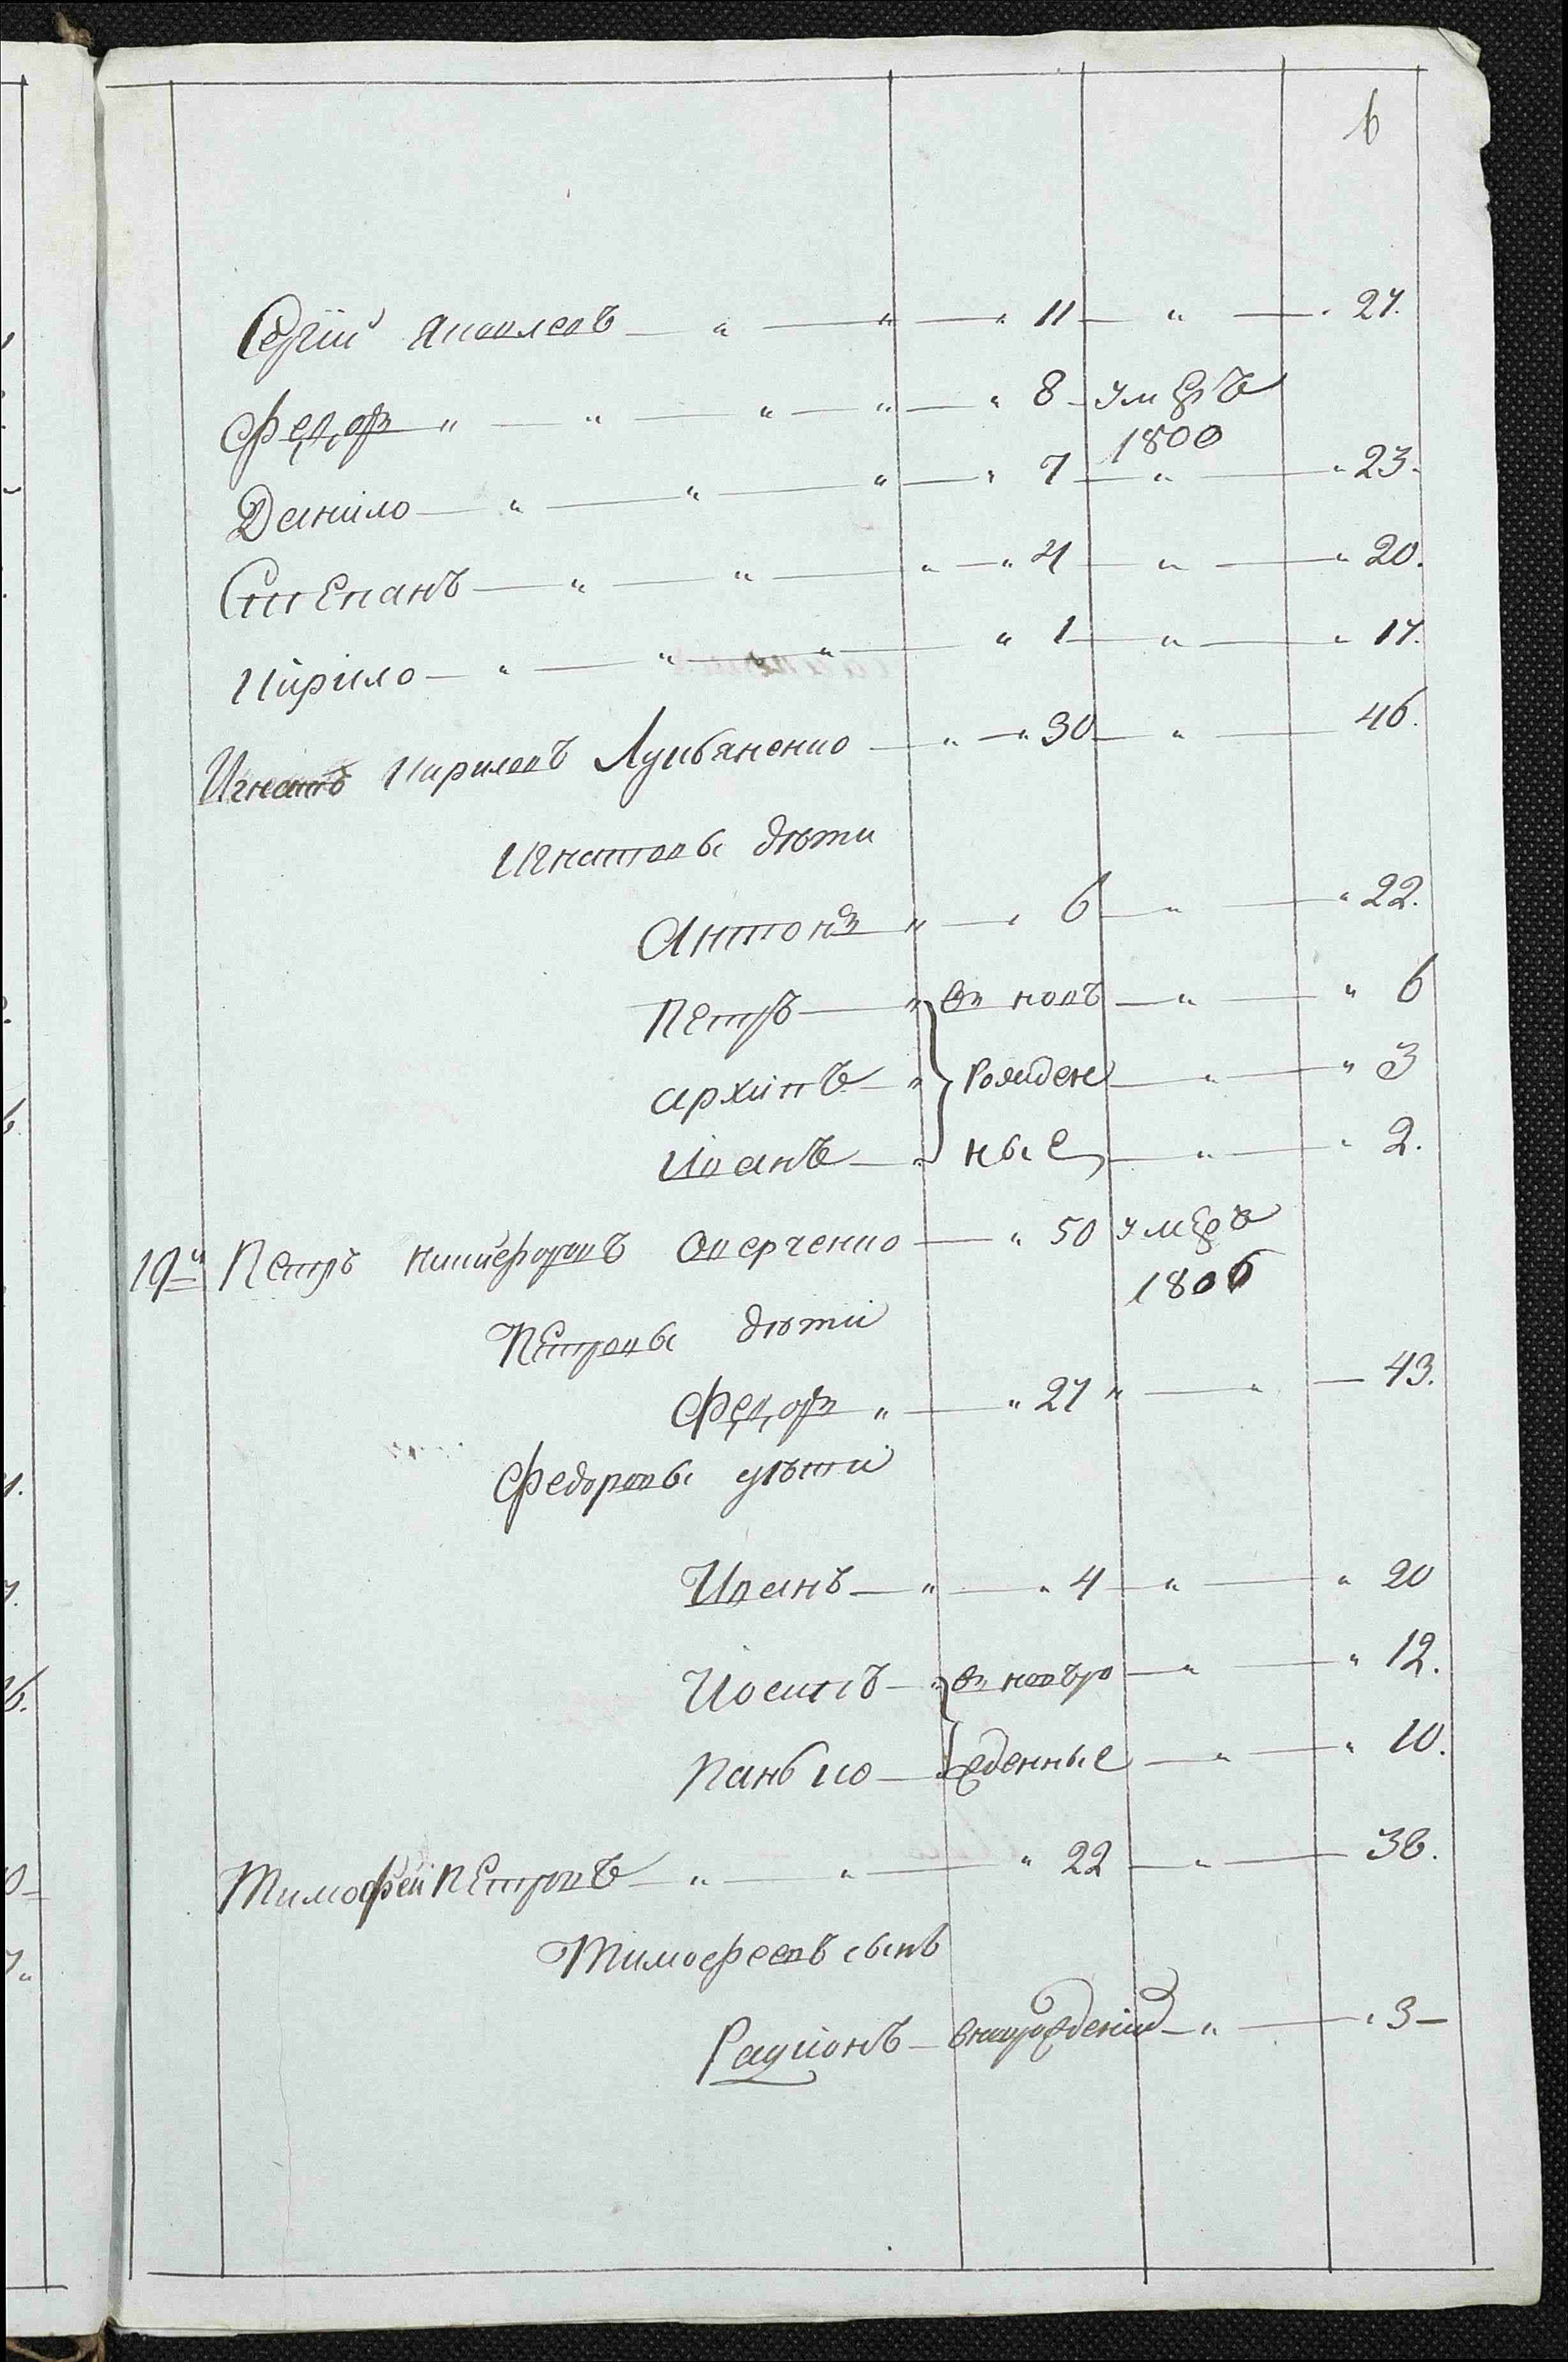 6
Сергій Яковлевъ — " — " — " 11 — " — " 27.
Федоръ " — " — " — " — " 8 — умеръ
1800
Данило — " — " — " — " 7 — " — " 23.
Степанъ — " — " — " — " 4 — " — " 20.
Кирило — " — " — " — " 1 — " — " 17.
Игнатъ Кириловъ Лукьяненко — " — " 30 — " — 46.
Игнатовы дѣти
Антонъ " — " 6 — " — " 22.
Петръ — " въ новъ — " — " 6
Архипъ — " рожден — " — " 3
Иванъ — " ные — " — " 2.
19й Петръ Никифоровъ Оверченко — " 50 умеръ
1806
Петровы дѣти
Федоръ " — " 27 " — " — 43.
Федоровы дѣти
Иванъ — " — " 4 — " — " 20
Иосипъ — " въ новъро — " — " 12.
Панько — жденные — " — " 10.
Тимофей Петровъ — " — " — " 22 — " — 38.
Тимофеевъ сынъ
Радионъ — вновърожденій — " — " 3 —